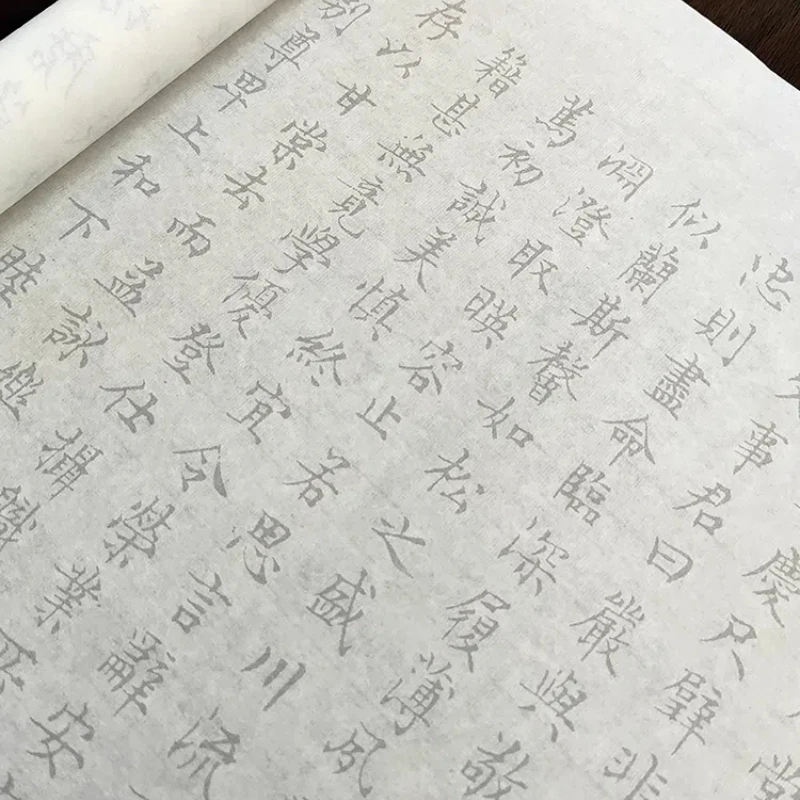 慶尺璧非
事君曰嚴與敬
忠則盡命臨深履薄夙
似蘭斯馨如松之盛川流
淵澄取暎容止若思言辭安
篤初誠美慎終宜令榮業
籍甚無竟學優登仕攝職
存以甘棠去而益詠樂
別尊卑上和下睦